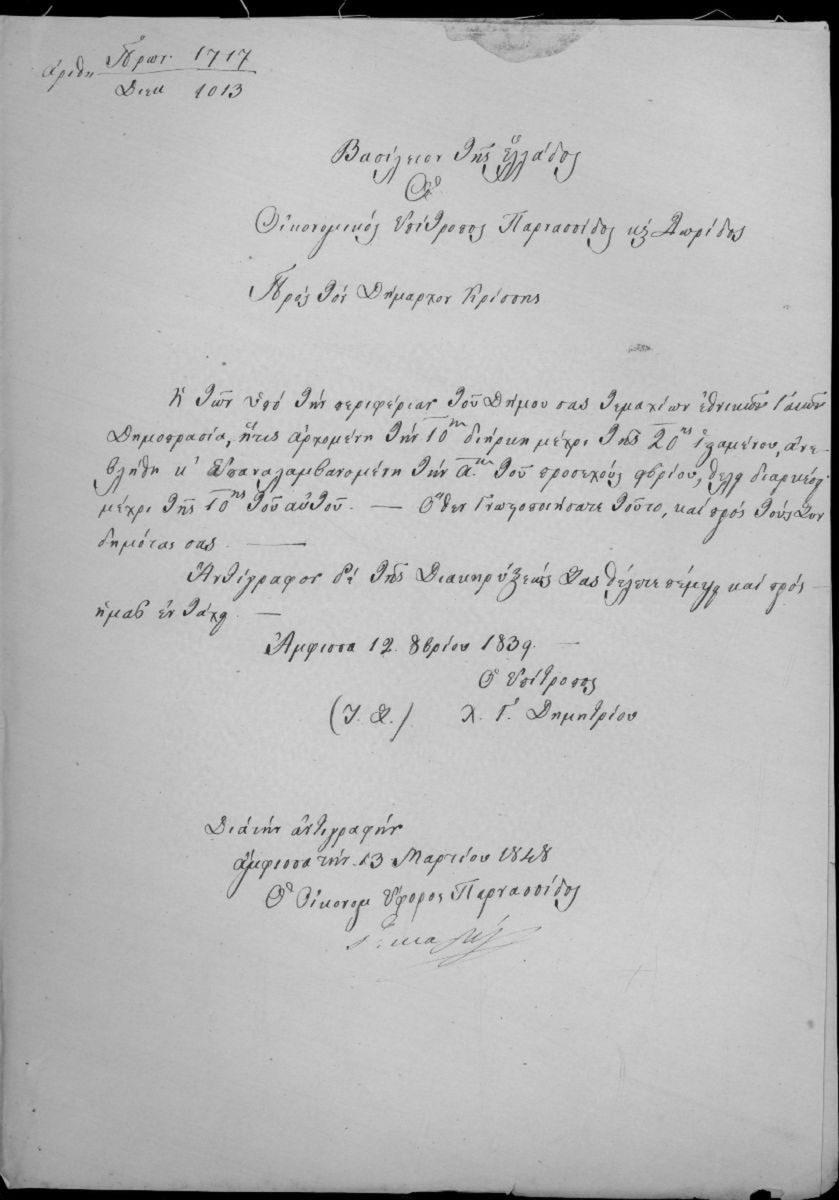 ἀριθ Πρωτ. 1717
Διεκ 1013
Βασίλειον τῆς Ἑλλάδος
Ὁ
Οἰκονομικός Ἐπίτροπος Παρνασσίδος κ Δωρίδος
Πρός τόν Δήμαρχον Κρίσσης
Ἡ τῶν ὑπό τήν περιφέριαν τοῦ Δήμου σας τεμαχίων ἐθνικῶν Γαιῶν
Δημοπρασία, ἥτις ἀρχομένη τήν 10ην διήρκη μέχρι τῆς 20ης ἱσταμένου, ἀνε-
βλήθη κ' ἐπαναλαμβανομένη τήν α.ην τοῦ προσεχοῦς 9βρίου, θέλει διαρκέσει
μέχρι τῆς 10ης τοῦ αὐτοῦ. — Ὅθεν Γνωστοποιήσατε τοῦτο, καί πρός τούς Συν
δημότας σας. —
Ἀντίγραφον δέ τῆς Διακηρύξεώς Σας θέλετε πέμψει καί πρός —
ἡμᾶς ἐν τάχει. —
Ἄμφισσα 12. 8βρίου 1839. —
Ὁ Ἐπίτροπος
(Τ. Σ.) Χ. Γ. Δημητρίου
Διά τήν ἀντιγραφήν
Ἄμφισσα τήν 13 Μαρτίου 1848
Ὁ Οἰκονομ Ἔφορος Παρνασσίδος